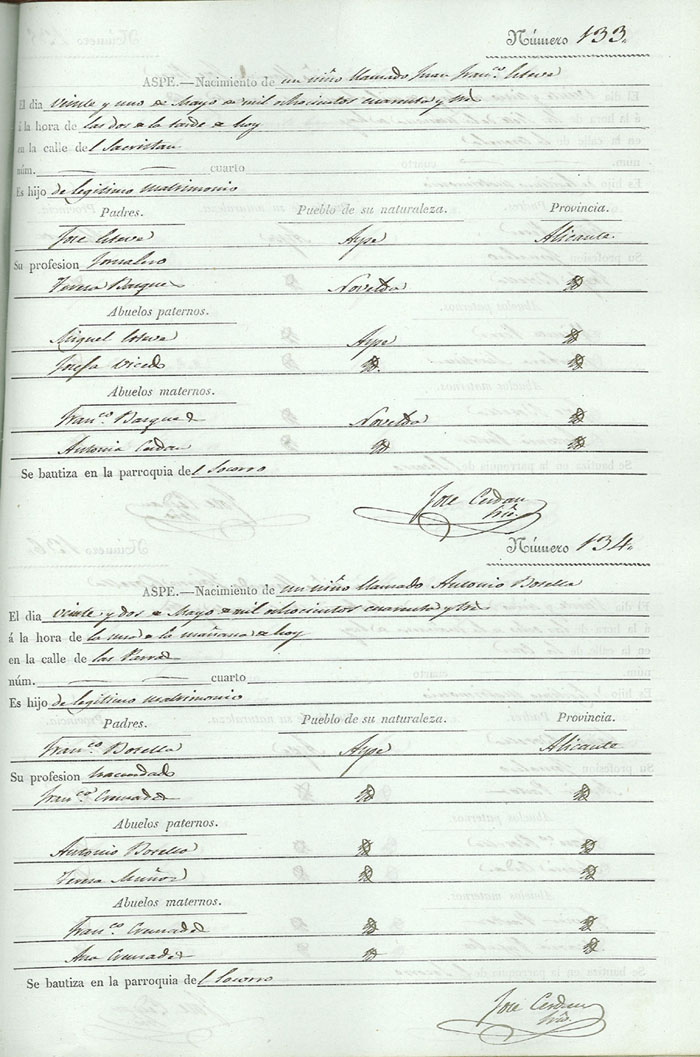 Número 133.
ASPE.—Nacimiento de un niño llamado Juan Fran.co Esteve
El dia veinte y uno de Mayo de mil ochocientos cuarenta y tres
á la hora de las dos de la tarde de hoy
en la calle del Sacristan
núm. cuarto
Es hijo de legitimo matrimonio
Padres. Pueblo de su naturaleza. Provincia.
Jose Esteve Aspe Alicante
Su profesion Jornalero
Teresa Novelda id
Abuelos paternos.
Miguel Esteve Aspe id
Josefa Vicedo id. id
Abuelos maternos.
Fran.co Novelda id
Antonia Cerdan id id
Se bautiza en la parroquia del Socorro
Jose Cerdan
Número 134.
ASPE.—Nacimiento de un niño llamado Antonio Botella
El dia veinte y dos de Mayo de mil ochocientos cuarenta y tres
á la hora de la una de la mañana de hoy
en la calle de las Parras
núm. cuarto
Es hijo de legitimo matrimonio
Padres. Pueblo de su naturaleza. Provincia.
Fran.co Botella Aspe Alicante
Su profesion hacendado
Fran.ca id id
Abuelos paternos.
Antonio Botella id id
Teresa Muñoz id id
Abuelos maternos.
Fran.co id id
Ana id id
Se bautiza en la parroquia del Socorro
Jose Cerdan